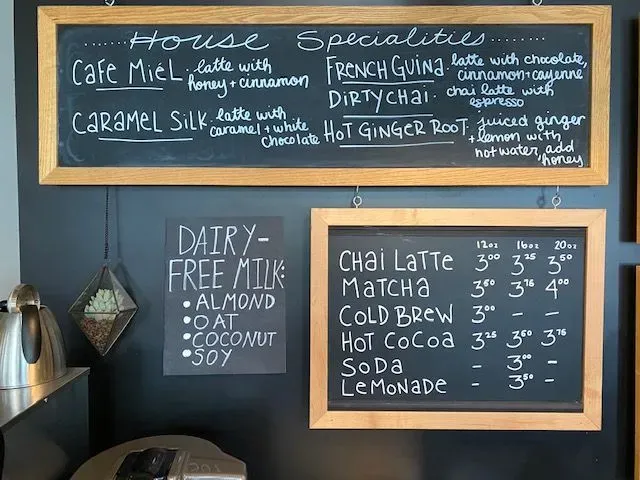 ......House Specialities......
CAFE MiéL · latte with
honey + cinnamon
CARAMEL SILK · latte with
caramel + white
chocolate
FRENCH GUINA · latte with chocolate,
cinnamon + cayenne
DIRTY CHAI · chai latte with
espresso
HOT GINGER ROOT · juiced ginger
+ lemon with
hot water, add
honey
DAIRY-
FREE MILK:
• ALMOND
• OAT
• COCONUT
• SOY
12oz 16oz 20oz
CHAI LATTE 3.00 3.25 3.50
MATCHA 3.50 3.75 4.00
COLD BREW 3.00 - -
HOT COCOA 3.25 3.50 3.75
SODA - 3.00 -
LEMONADE - 3.50 -